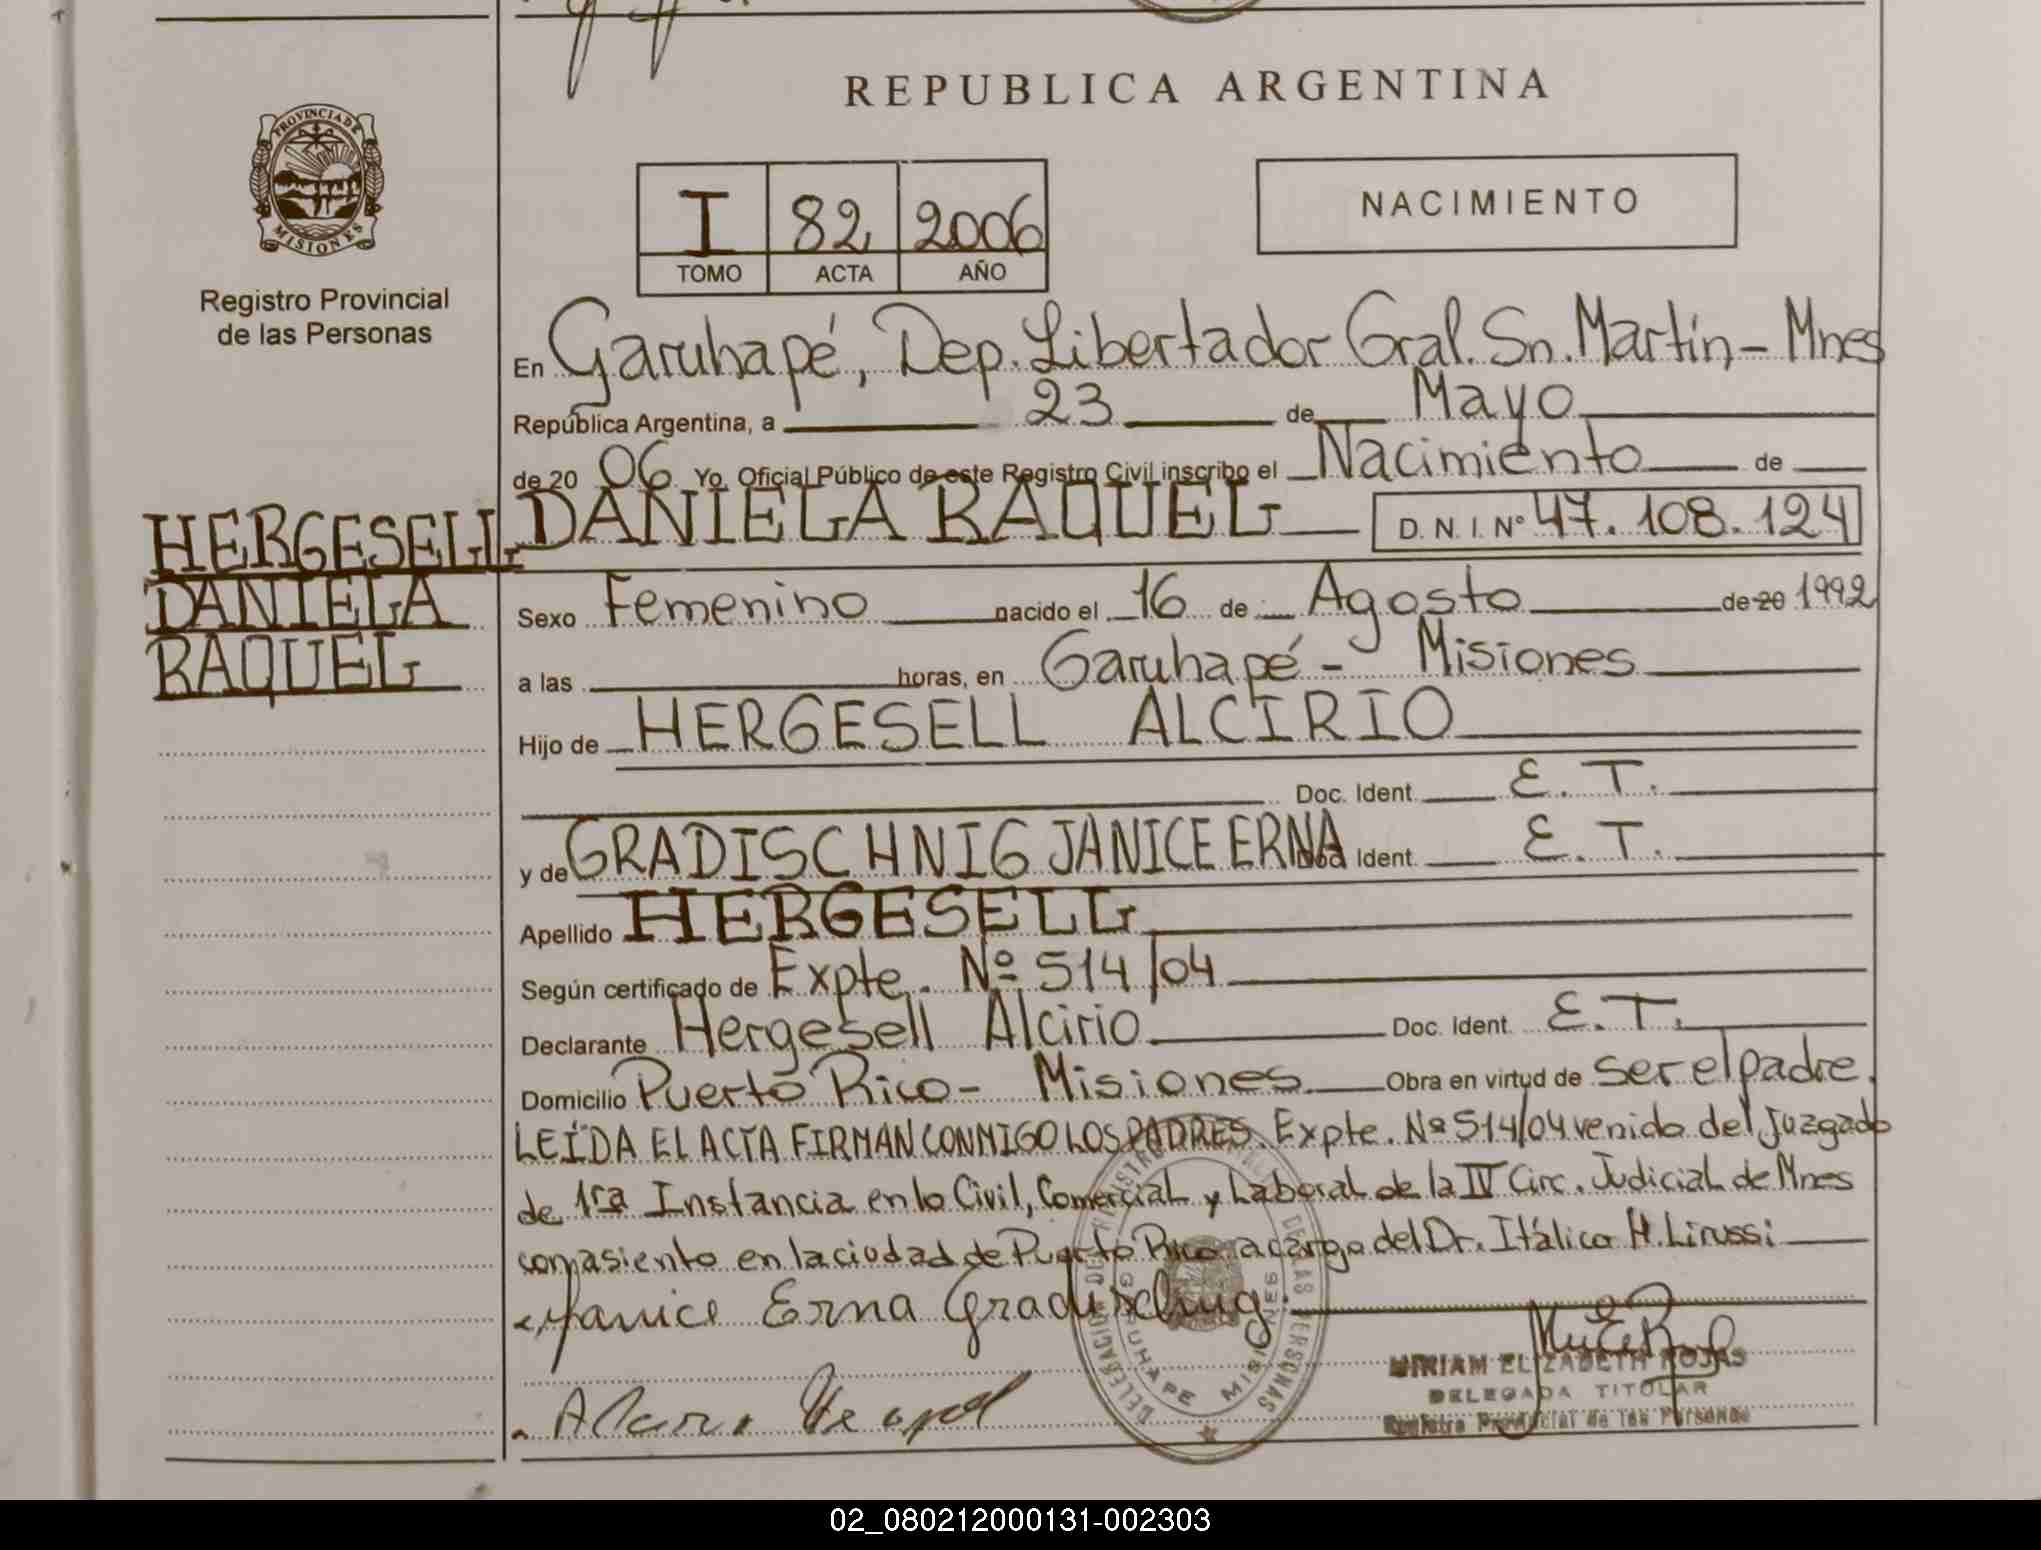 REPUBLICA ARGENTINA
PROVINCIA DE
MISIONES
Registro Provincial
de las Personas
I 82 2006
TOMO ACTA AÑO
NACIMIENTO
En Garuhapé, Dep. Libertador Gral. Sn. Martín - Mnes
República Argentina, a 23 de Mayo
de 20 06 Yo, Oficial Público de este Registro Civil inscribo el Nacimiento de
DANIELA RAQUEL D. N. I. N° 47.108.124
HERGESELL
DANIELA
RAQUEL
Sexo Femenino nacido el 16 de Agosto de 20 1992
a las horas, en Garuhapé - Misiones
Hijo de HERGESELL ALCIRIO
Doc. Ident. E. T.
y de GRADISCHNIG JANICE ERNA Doc. Ident. E. T.
Apellido HERGESELL
Según certificado de Expte. Nº 514/04
Declarante Hergesell Alcirio Doc. Ident. E. T.
Domicilio Puerto Rico - Misiones Obra en virtud de ser el padre.
LEÍDA EL ACTA FIRMAN CONMIGO LOS PADRES. Expte. Nº 514/04 venido del Juzgado
de 1ra Instancia en lo Civil, Comercial y Laboral de la IV Circ. Judicial de Mnes
con asiento en la ciudad de Puerto Rico a cargo del Dr. Itálico H. Lirussi
Janice Erna Gradischnig
MIRIAM ELIZABETH ROJAS
DELEGADA TITULAR
Registro Provincial de las Personas
GARUHAPE MISIONES
02_080212000131-002303